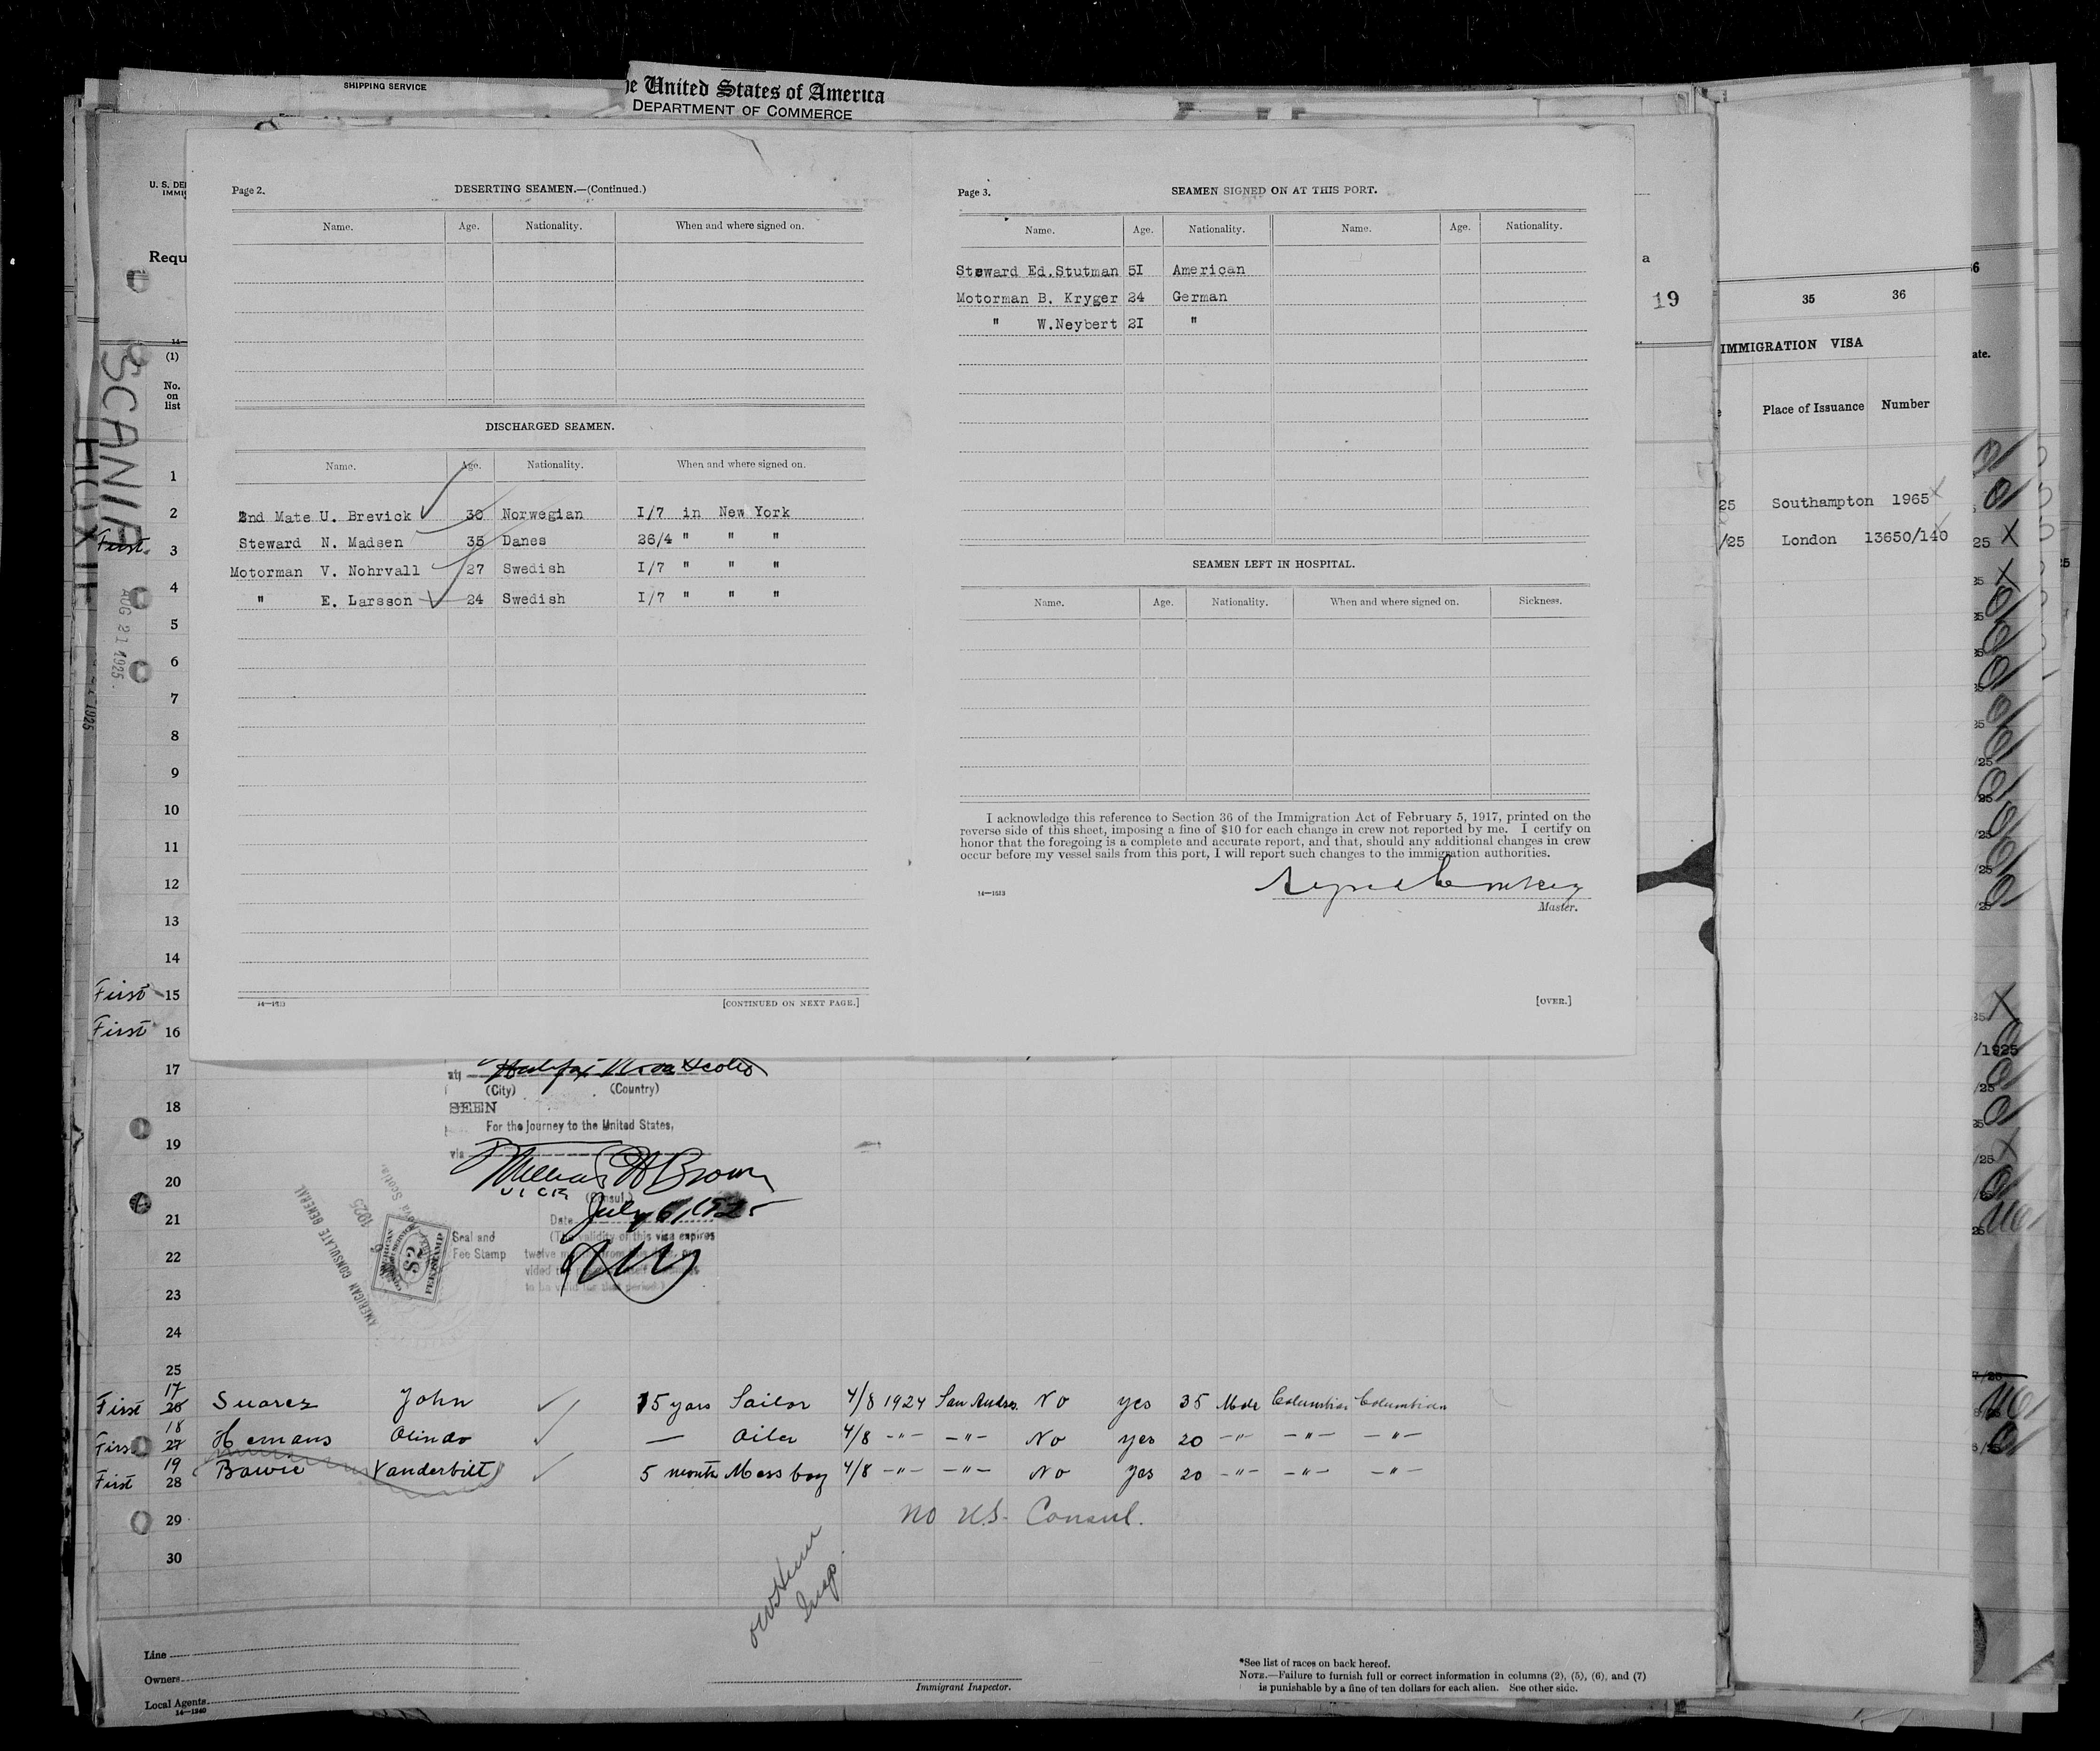 SHIPPING SERVICE
e United States of America
DEPARTMENT OF COMMERCE
U. S. DE
IMMI
Requ
(1)
No.
on
list
SCANIA
AUG 21 1925
1925
Page 2.
DESERTING SEAMEN.—(Continued.)
Name. Age. Nationality. When and where signed on.
DISCHARGED SEAMEN.
Name. Age. Nationality. When and where signed on.
2nd Mate U. Brevick 30 Norwegian I/7 in New York
Steward N. Madsen 35 Danes 26/4 " " "
Motorman V. Nohrvall 27 Swedish I/7 " " "
" E. Larsson 24 Swedish I/7 " " "
14—1513
[CONTINUED ON NEXT PAGE.]
Page 3.
SEAMEN SIGNED ON AT THIS PORT.
Name. Age. Nationality. Name. Age. Nationality.
Steward Ed.Stutman 5I American
Motorman B. Kryger 24 German
" W.Neybert 2I "
SEAMEN LEFT IN HOSPITAL.
Name. Age. Nationality. When and where signed on. Sickness.
I acknowledge this reference to Section 36 of the Immigration Act of February 5, 1917, printed on the
reverse side of this sheet, imposing a fine of $10 for each change in crew not reported by me. I certify on
honor that the foregoing is a complete and accurate report, and that, should any additional changes in crew
occur before my vessel sails from this port, I will report such changes to the immigration authorities.
14—1513
Master.
[OVER.]
a
19
35 36
IMMIGRATION VISA
Place of Issuance Number
25 Southampton 1965
/25 London 13650/140
6
ate.
1
2
First 3
4
5
6
7
8
9
10
11
12
13
14
First 15
First 16
17
18
19
20
21
22
23
24
25
at Halifax Nova Scotia
(City) (Country)
SEEN
For the journey to the United States,
via
William H Brown
VICE (Consul)
Date July 6, 1925
Seal and
Fee Stamp
(The validity of this visa expires
AMERICAN CONSULATE GENERAL
1925
Nova Scotia
AMERICAN
$2
FEE STAMP
17
First 26 Suarez John 15 years Sailor 4/8 1924 San Andres No yes 35 Male Columbian Columbian
18
First 27 Hemans Olindo — Oiler 4/8 -"- -"- No yes 20 -"- -"- -"-
19
First 28 Bowie Vanderbilt 5 month Mess boy 4/8 -"- -"- No yes 20 -"- -"- -"-
29 no U.S. Consul.
30
Insp.
Line
Owners
Local Agents
14—1240
Immigrant Inspector.
*See list of races on back hereof.
NOTE.—Failure to furnish full or correct information in columns (2), (5), (6), and (7)
is punishable by a fine of ten dollars for each alien. See other side.